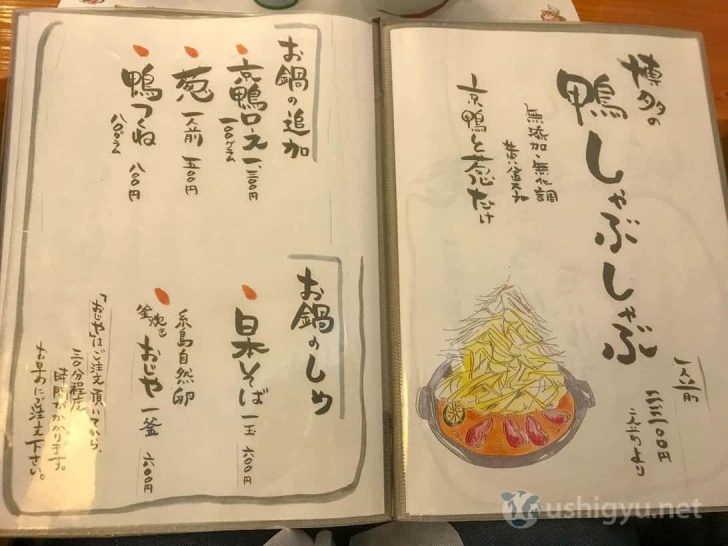 博多の
鴨しゃぶしゃぶ
無添加・無化調
黄金スープ
京鴨と葱だけ
一人前
二人前より
お鍋の追加
京鴨ロース 一、三〇〇円
一〇〇グラム
葱 一人前 五〇〇円
鴨つくね 八〇〇円
八〇グラム
お鍋のしめ
日本そば 一玉 六〇〇円
糸島自然卵
釜炊き おじや 一釜 六〇〇円
「おじや」はご注文頂いてから、
三〇分程度
時間がかかります。
お早めにご注文下さい。
ushigyu.net